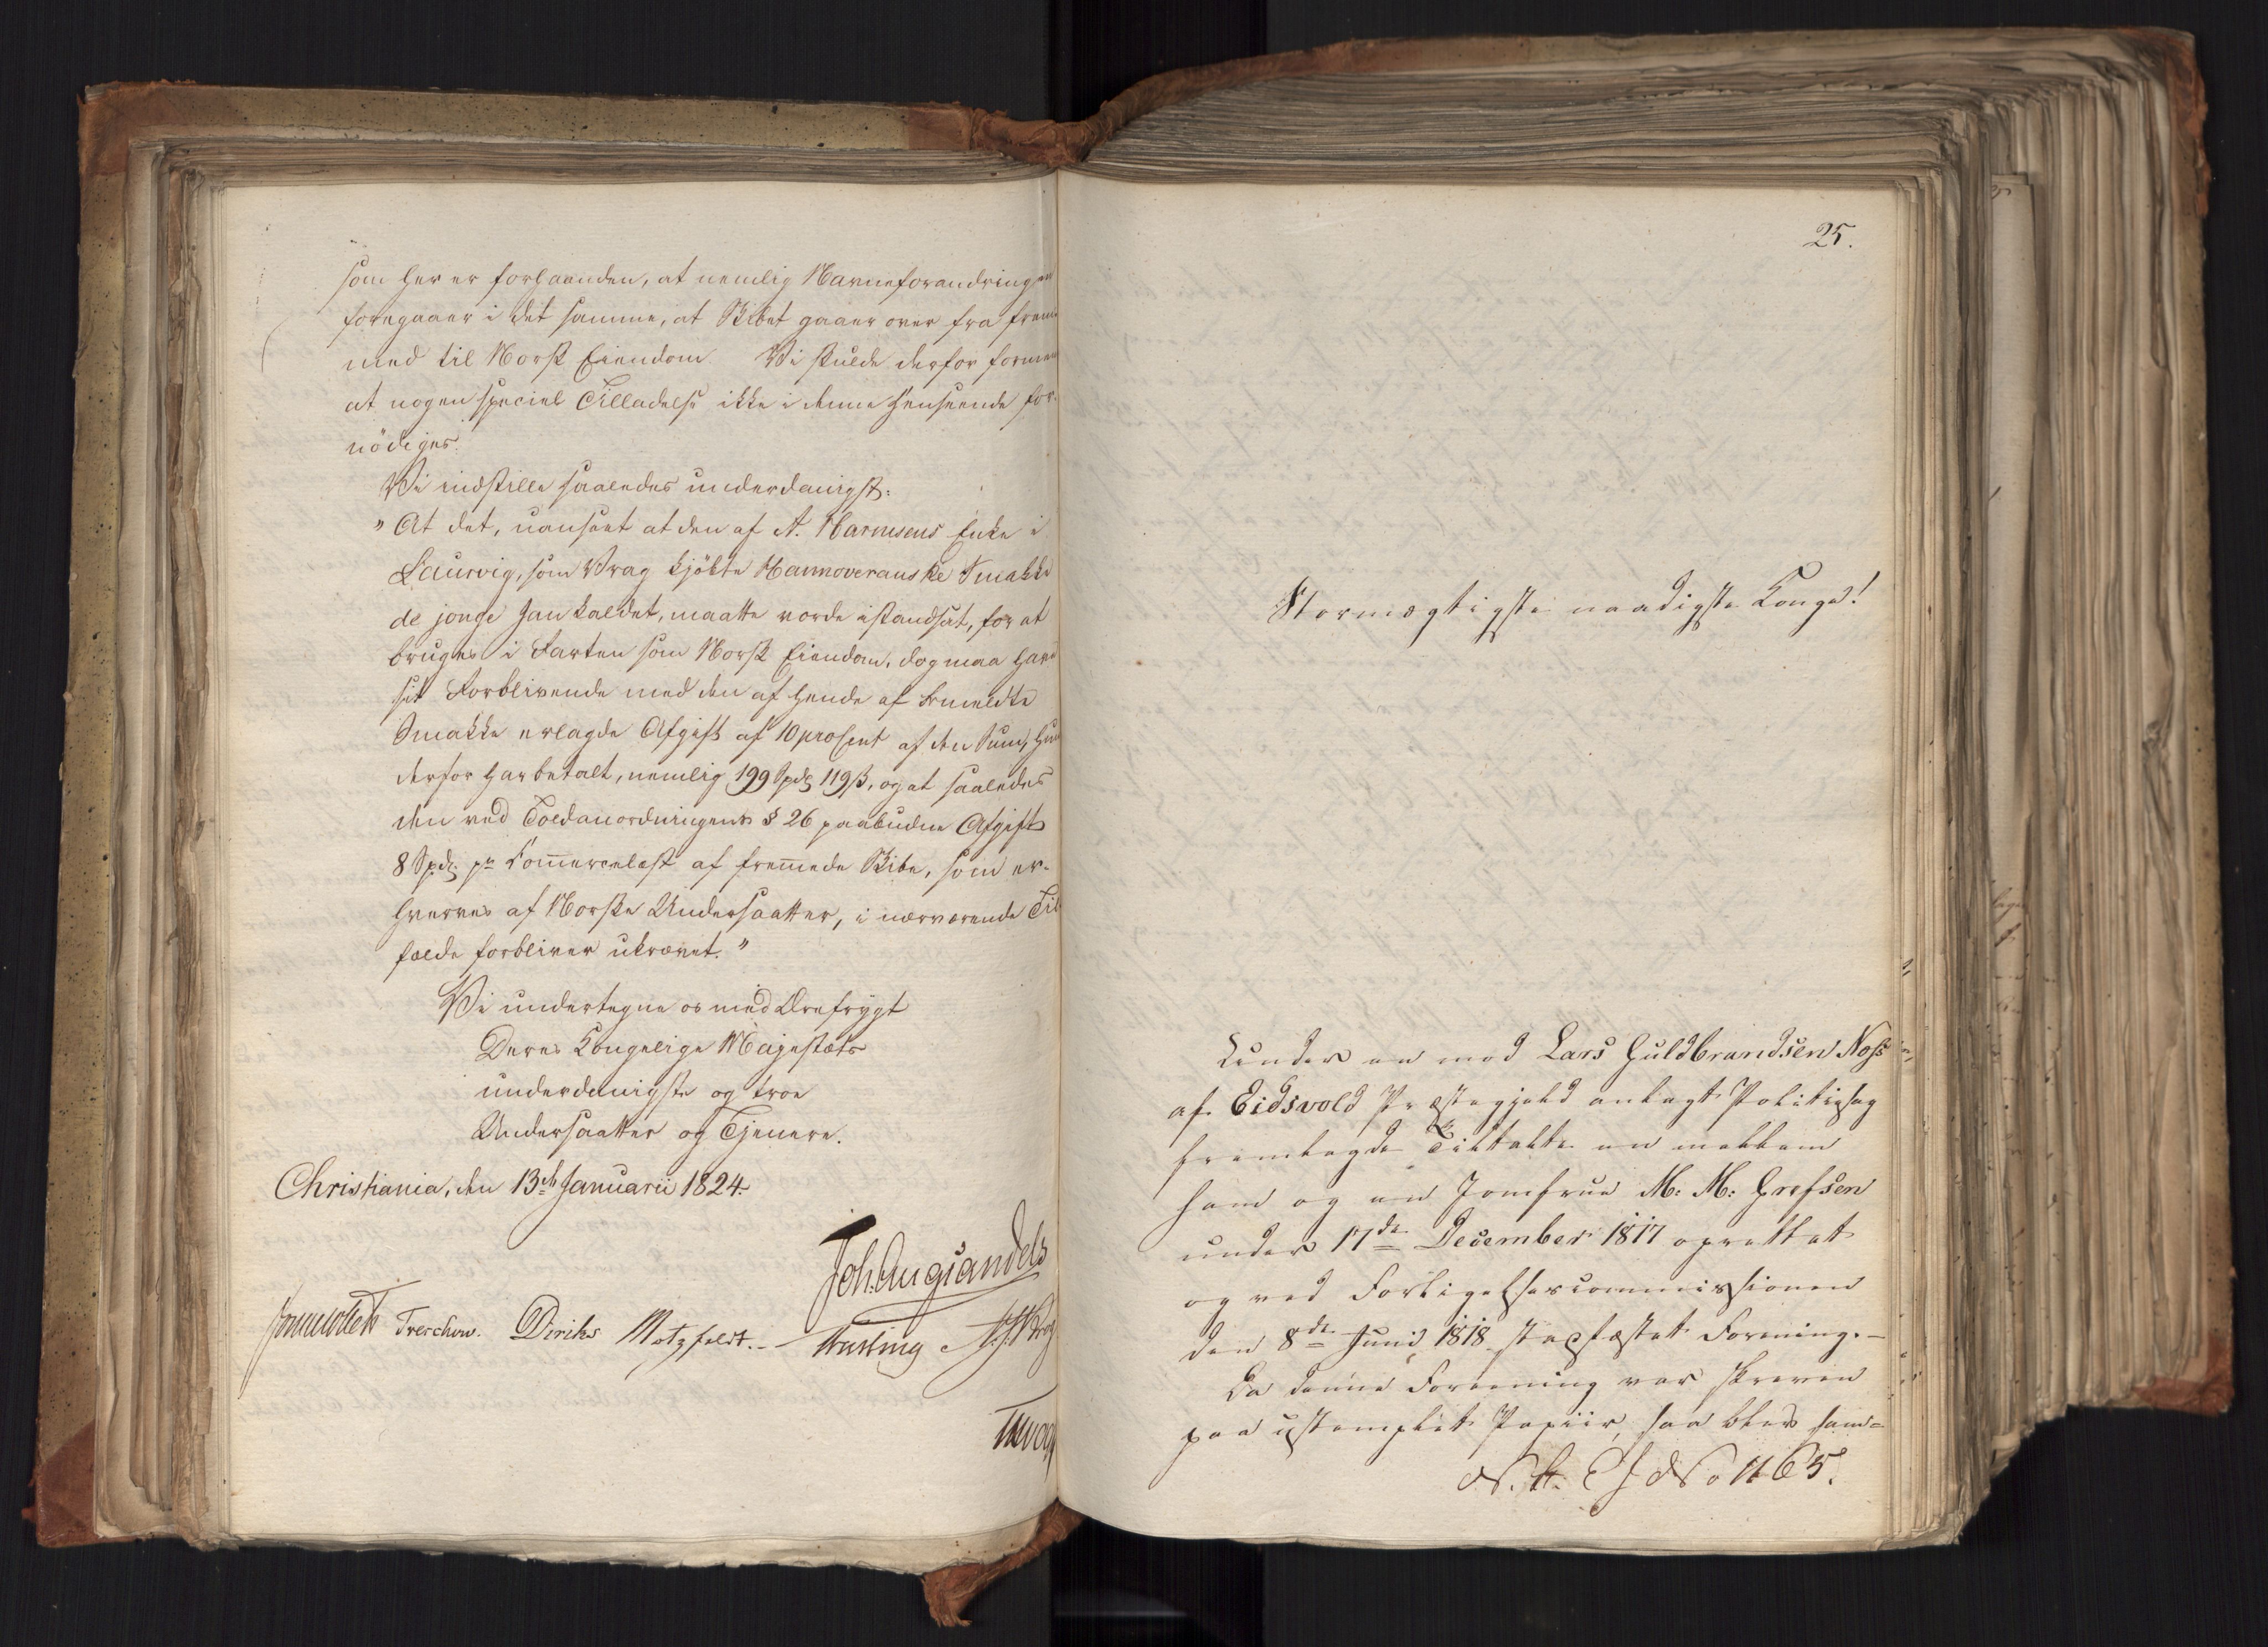 som her er forhaanden, at nemlig Navneforandringen
foregaaer i det samme, at Skibet gaaer over fra frem-
med til Norsk Eiendom. Vi skulde derfor formene
at nogen speciel Tilladelse ikke i denne Henseende for-
nödiges.
Vi indstille saaledes underdanigst:
"At det, uanseet at den af A. Narvesens Enke i
Laurvig, som Vrag kjöbte Hannoveranske Smakke
de jonge Jan kaldet, maatte vorde istandsat, for at
bruges i Farten som Norsk Eiendom, dog maa have
sit Forblivende med den af hende af bemeldte
Smakke erlagde Afgift af 10 proCent af den Sum, hun
derfor har betalt, nemlig 199 Spd 119 ß, og at saaledes
den ved Toldanordningens § 26 paabudne Afgift
8 Spd. pr Commercelæst af fremmede Skibe, som er-
hverves af Norske Undersaatter, i nærværende Til-
fælde forbliver ukrævet."
Vi undertegne os med Ærefrygt
Deres Kongelige Majestæts
underdanigste og troe
Undersaatter og Tjenere.
Christiania, den 13de Januarii 1824.
Joh. Aug. Sandels
Sommerfeldt Treschow. Diriks Motzfeldt. Fasting
25.
Stormægtigste naadigste Konge!
Under en mod Lars Guldbrandsen Noss
af Eidsvold Præstegjeld anlagt Politiesag
fremlagde Tiltalte en mellem
ham og en Jomfrue M: M: Grefsen
under 17de December 1817 oprettet
og ved Forligelsescommissionen
den 8de Junii 1818 stadfæstet Forening. –
Da denne Forening var skreven
paa ustemplet Papiir, saa blev sam-
No 1165.